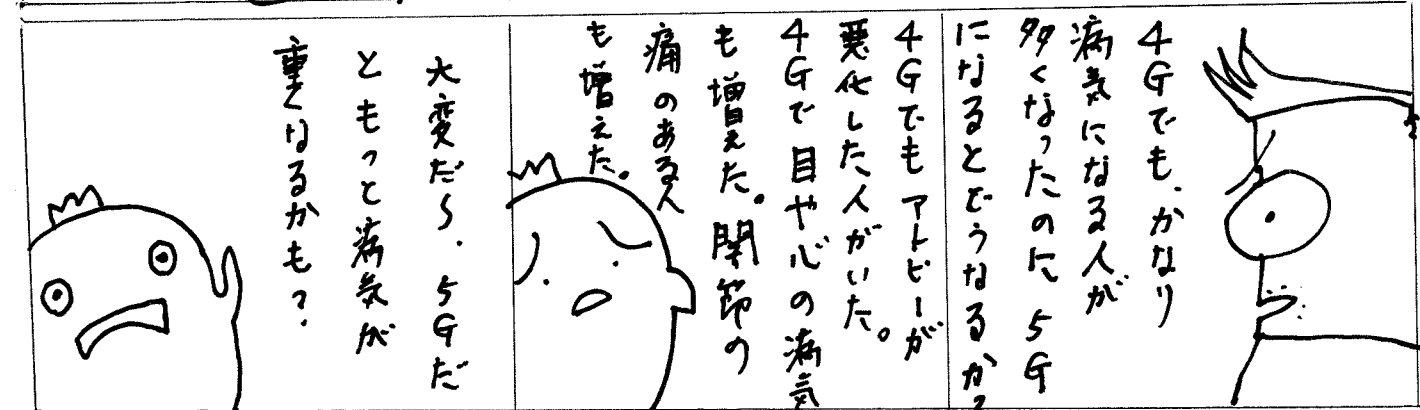 4Gでも、かなり
病気になる人が
多くなったのに 5G
になるとどうなるか?
4Gでも アトピーが
悪化した人がいた。
4Gで 目や心の病気
も増えた。関節の
痛のある人
も増えた。
大変だ〜、5Gだ
ともっと病気が
重くなるかも?